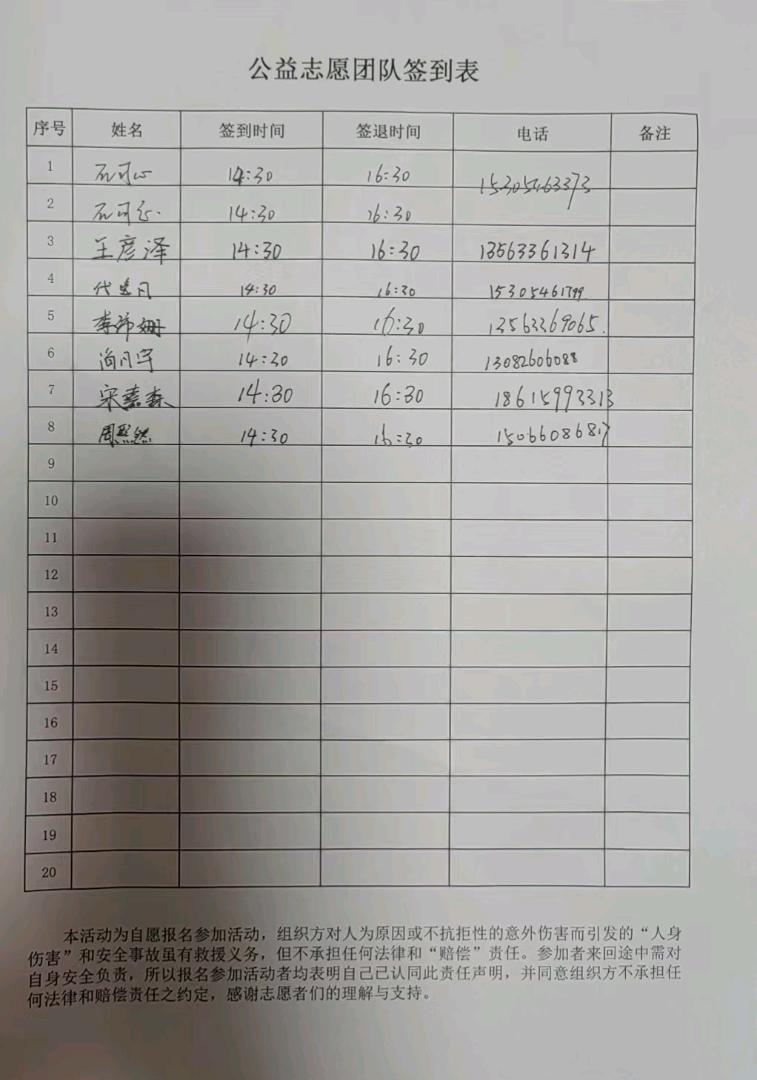 公益志愿团队签到表
序号 姓名 签到时间 签退时间 电话 备注
1 石可心 14:30 16:30 15305463373
2 石可 14:30 16:30
3 王彦泽 14:30 16:30 13563361314
4 14:30 16:30 15305461799
5 李沛姗 14:30 16:30 13563369065.
6 14:30 16:30 13082606088
7 宋嘉森 14:30 16:30 18615993313
8 周熙然 14:30 16:30 15066086817
9
10
11
12
13
14
15
16
17
18
19
20
本活动为自愿报名参加活动，组织方对人为原因或不抗拒性的意外伤害而引发的“人身
伤害”和安全事故虽有救援义务，但不承担任何法律和“赔偿”责任。参加者来回途中需对
自身安全负责，所以报名参加活动者均表明自己已认同此责任声明，并同意组织方不承担任
何法律和赔偿责任之约定，感谢志愿者们的理解与支持。